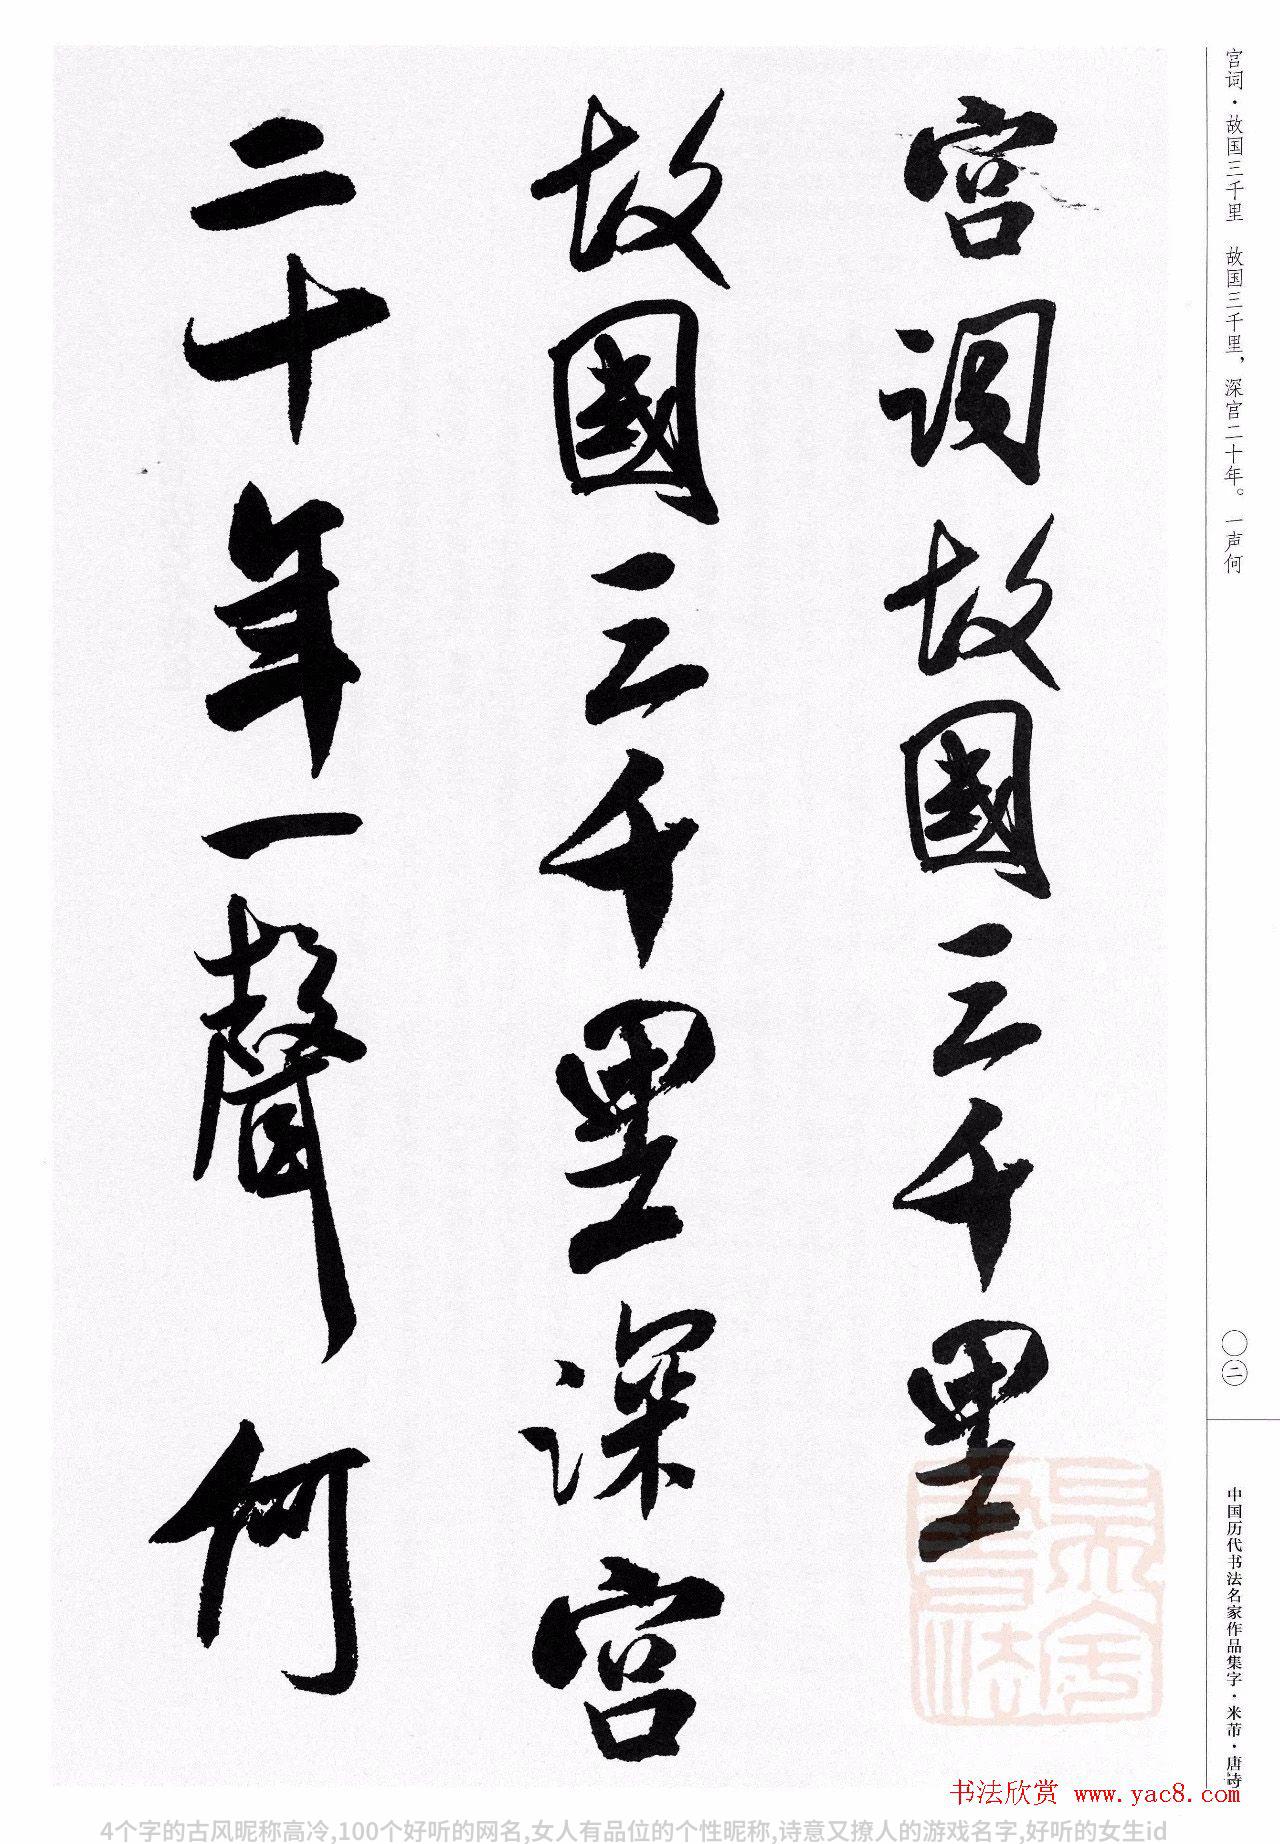 宫词·故国三千里　故国三千里，深宫二十年。一声何
宫词故國三千里
故國三千里深宫
二十年一聲何
〇二
中国历代书法名家作品集字·米芾·唐诗
书法欣赏 www.yac8.com
4个字的古风昵称高冷,100个好听的网名,女人有品位的个性昵称,诗意又撩人的游戏名字,好听的女生id